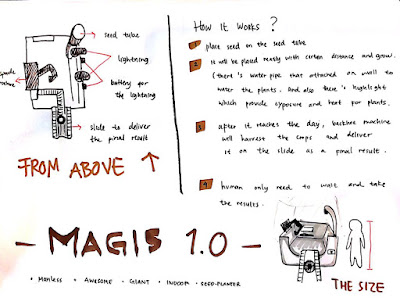 seed tube
lightning
battery for
the lightning
slide to deliver
the final result
FROM ABOVE
How it works ?
1 place seed on the seed tube
2 it will be placed neatly with certain distance and grow.
(there's water pipe that attached on wall to
water the plants. And also there's highlight
which provide exposure and heat for plants.
3 after it reaches the day, backhoe machine
will harvest the crops and deliver
it on the slide as a final result.
4 human only need to wait and take
the results.
- MAGIS 1.0 -
• MANLESS • AWESOME • GIANT • INDOOR • SEED-PLANTER
THE SIZE